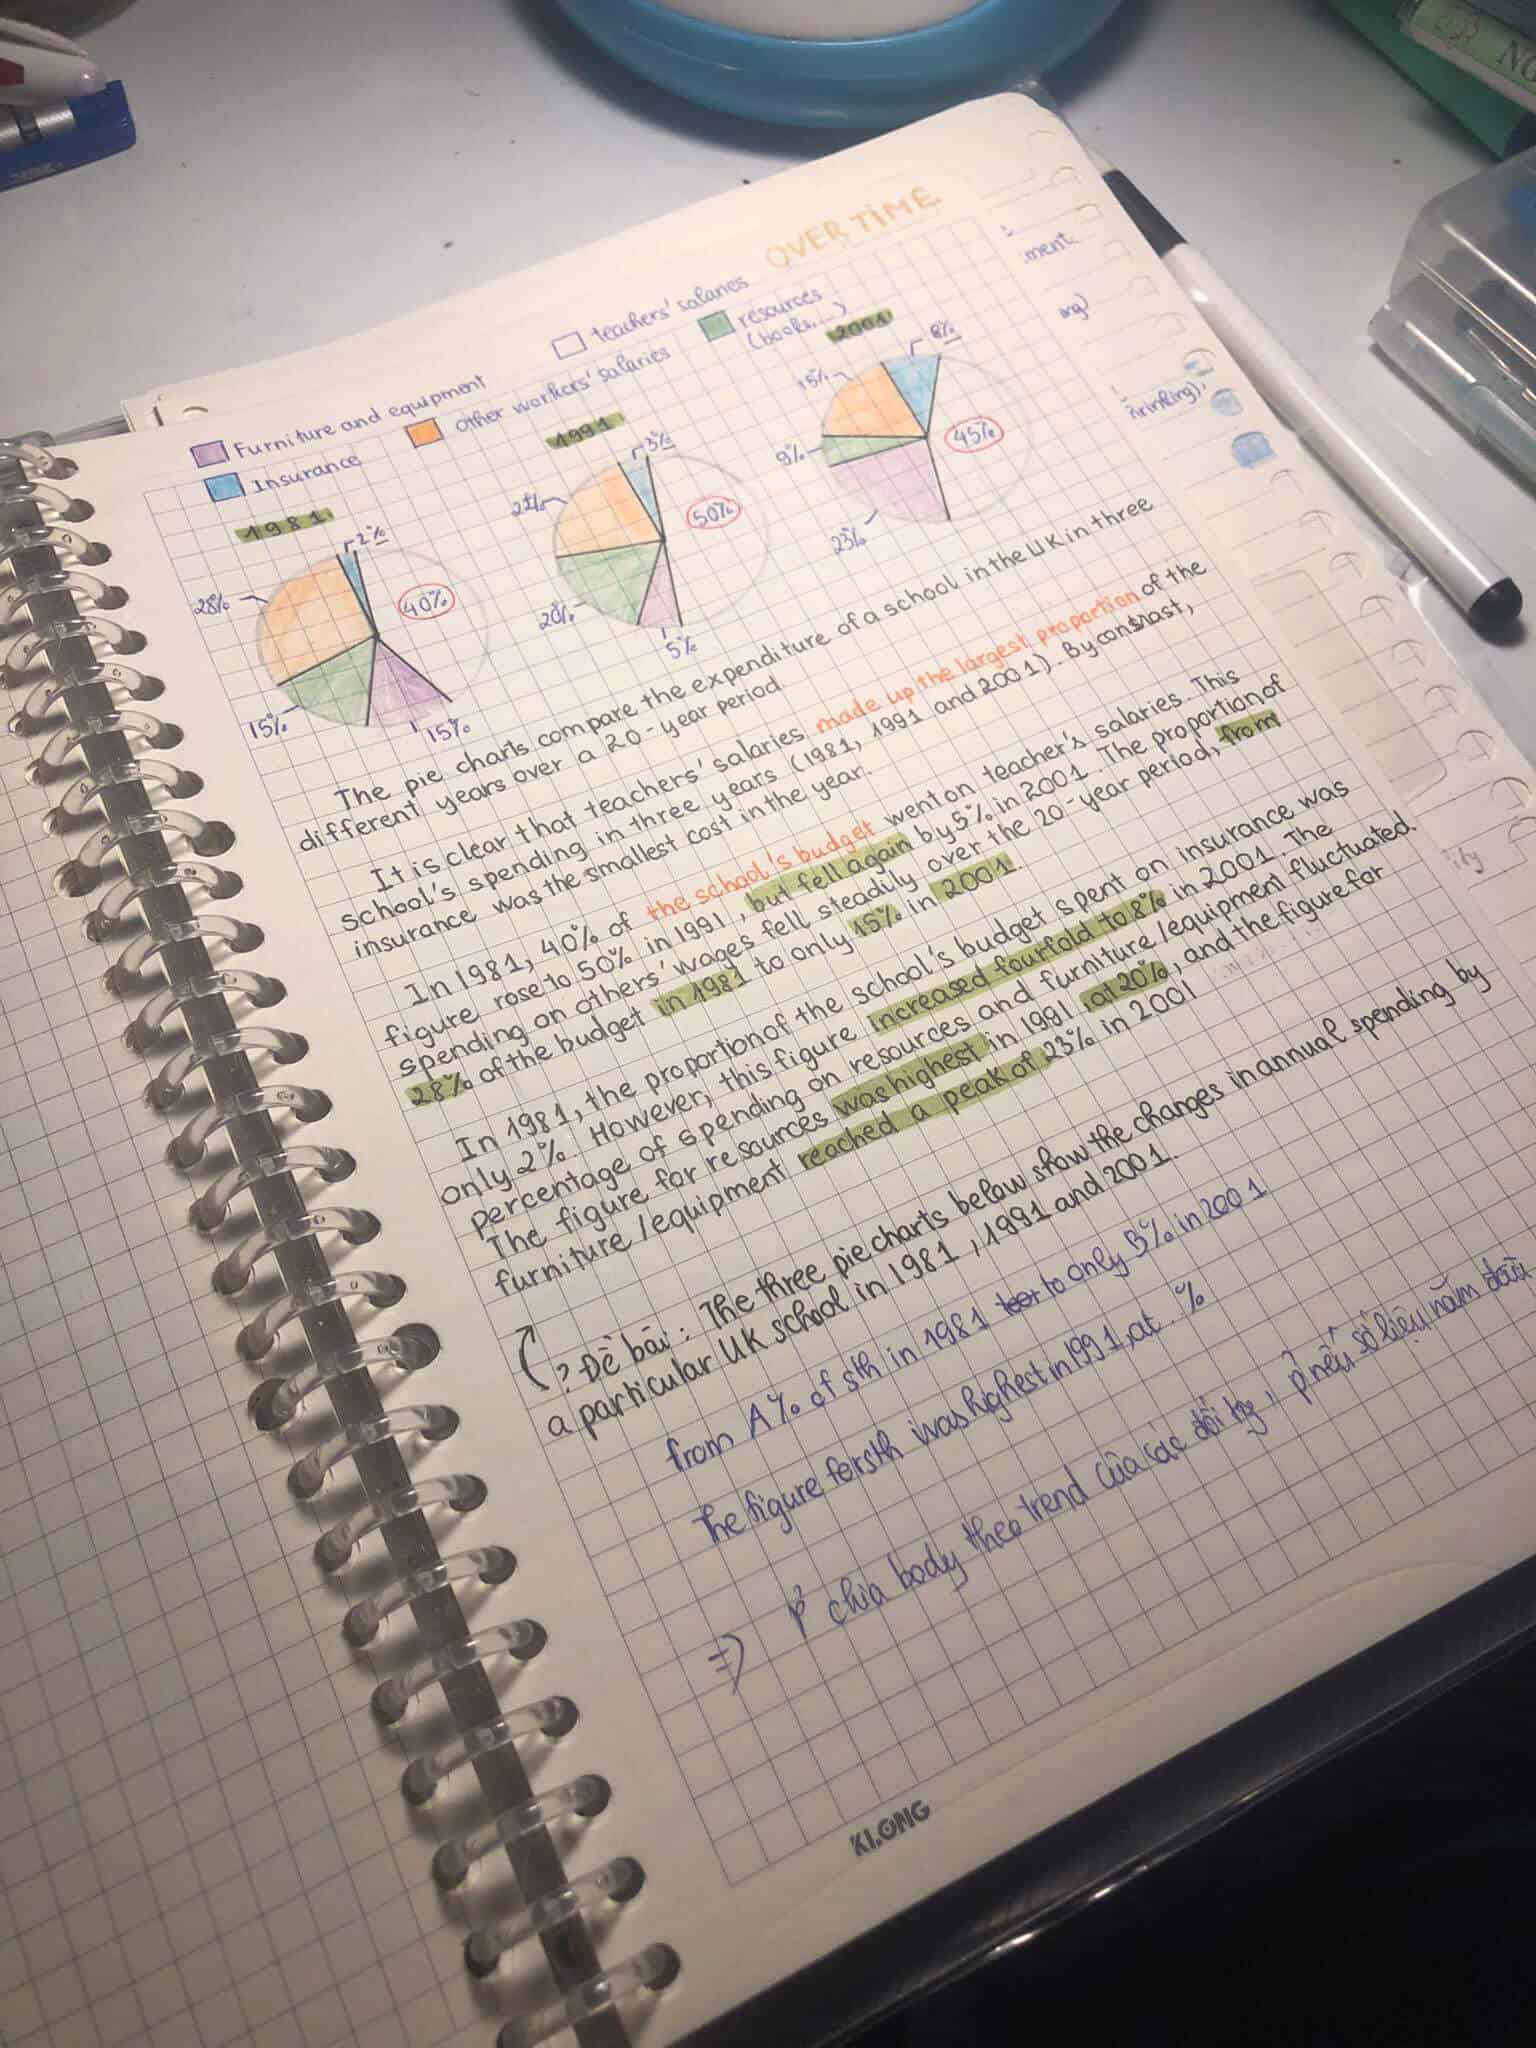 OVER TIME
Furniture and equipment
teachers' salaries
Insurance
Other workers' salaries
resources
(books,...)
1981
2%
28%
40%
15%
15%
1991
3%
50%
20%
5%
2001
8%
15%
45%
9%
23%
The pie charts compare the expenditure of a school in the UK in three
different years over a 20-year period.
It is clear that teachers' salaries made up the largest proportion of the
school's spending in three years (1981, 1991 and 2001). By constrast,
insurance was the smallest cost in the year.
In 1981, 40% of the school's budget went on teacher's salaries. This
figure rose to 50% in 1991, but fell again by 5% in 2001. The proportion of
spending on others' wages fell steadily over the 20-year period, from
28% of the budget in 1981 to only 15% in 2001.
In 1981, the proportion of the school's budget spent on insurance was
only 2%. However, this figure increased fourfold to 8% in 2001. The
percentage of spending on resources and furniture/equipment fluctuated.
The figure for resources was highest in 1991, at 20%, and the figure for
furniture/equipment reached a peak of 23% in 2001
? Đề bài: The three pie charts below show the changes in annual spending by
a particular UK school in 1981, 1991 and 2001.
from A% of sth in 1981 to only B% in 2001
The figure for sth was highest in 1991, at .%
=) chia body theo trend của các đối tg, nếu số liệu năm dưới
KLONG
ment
ing)
drinking),